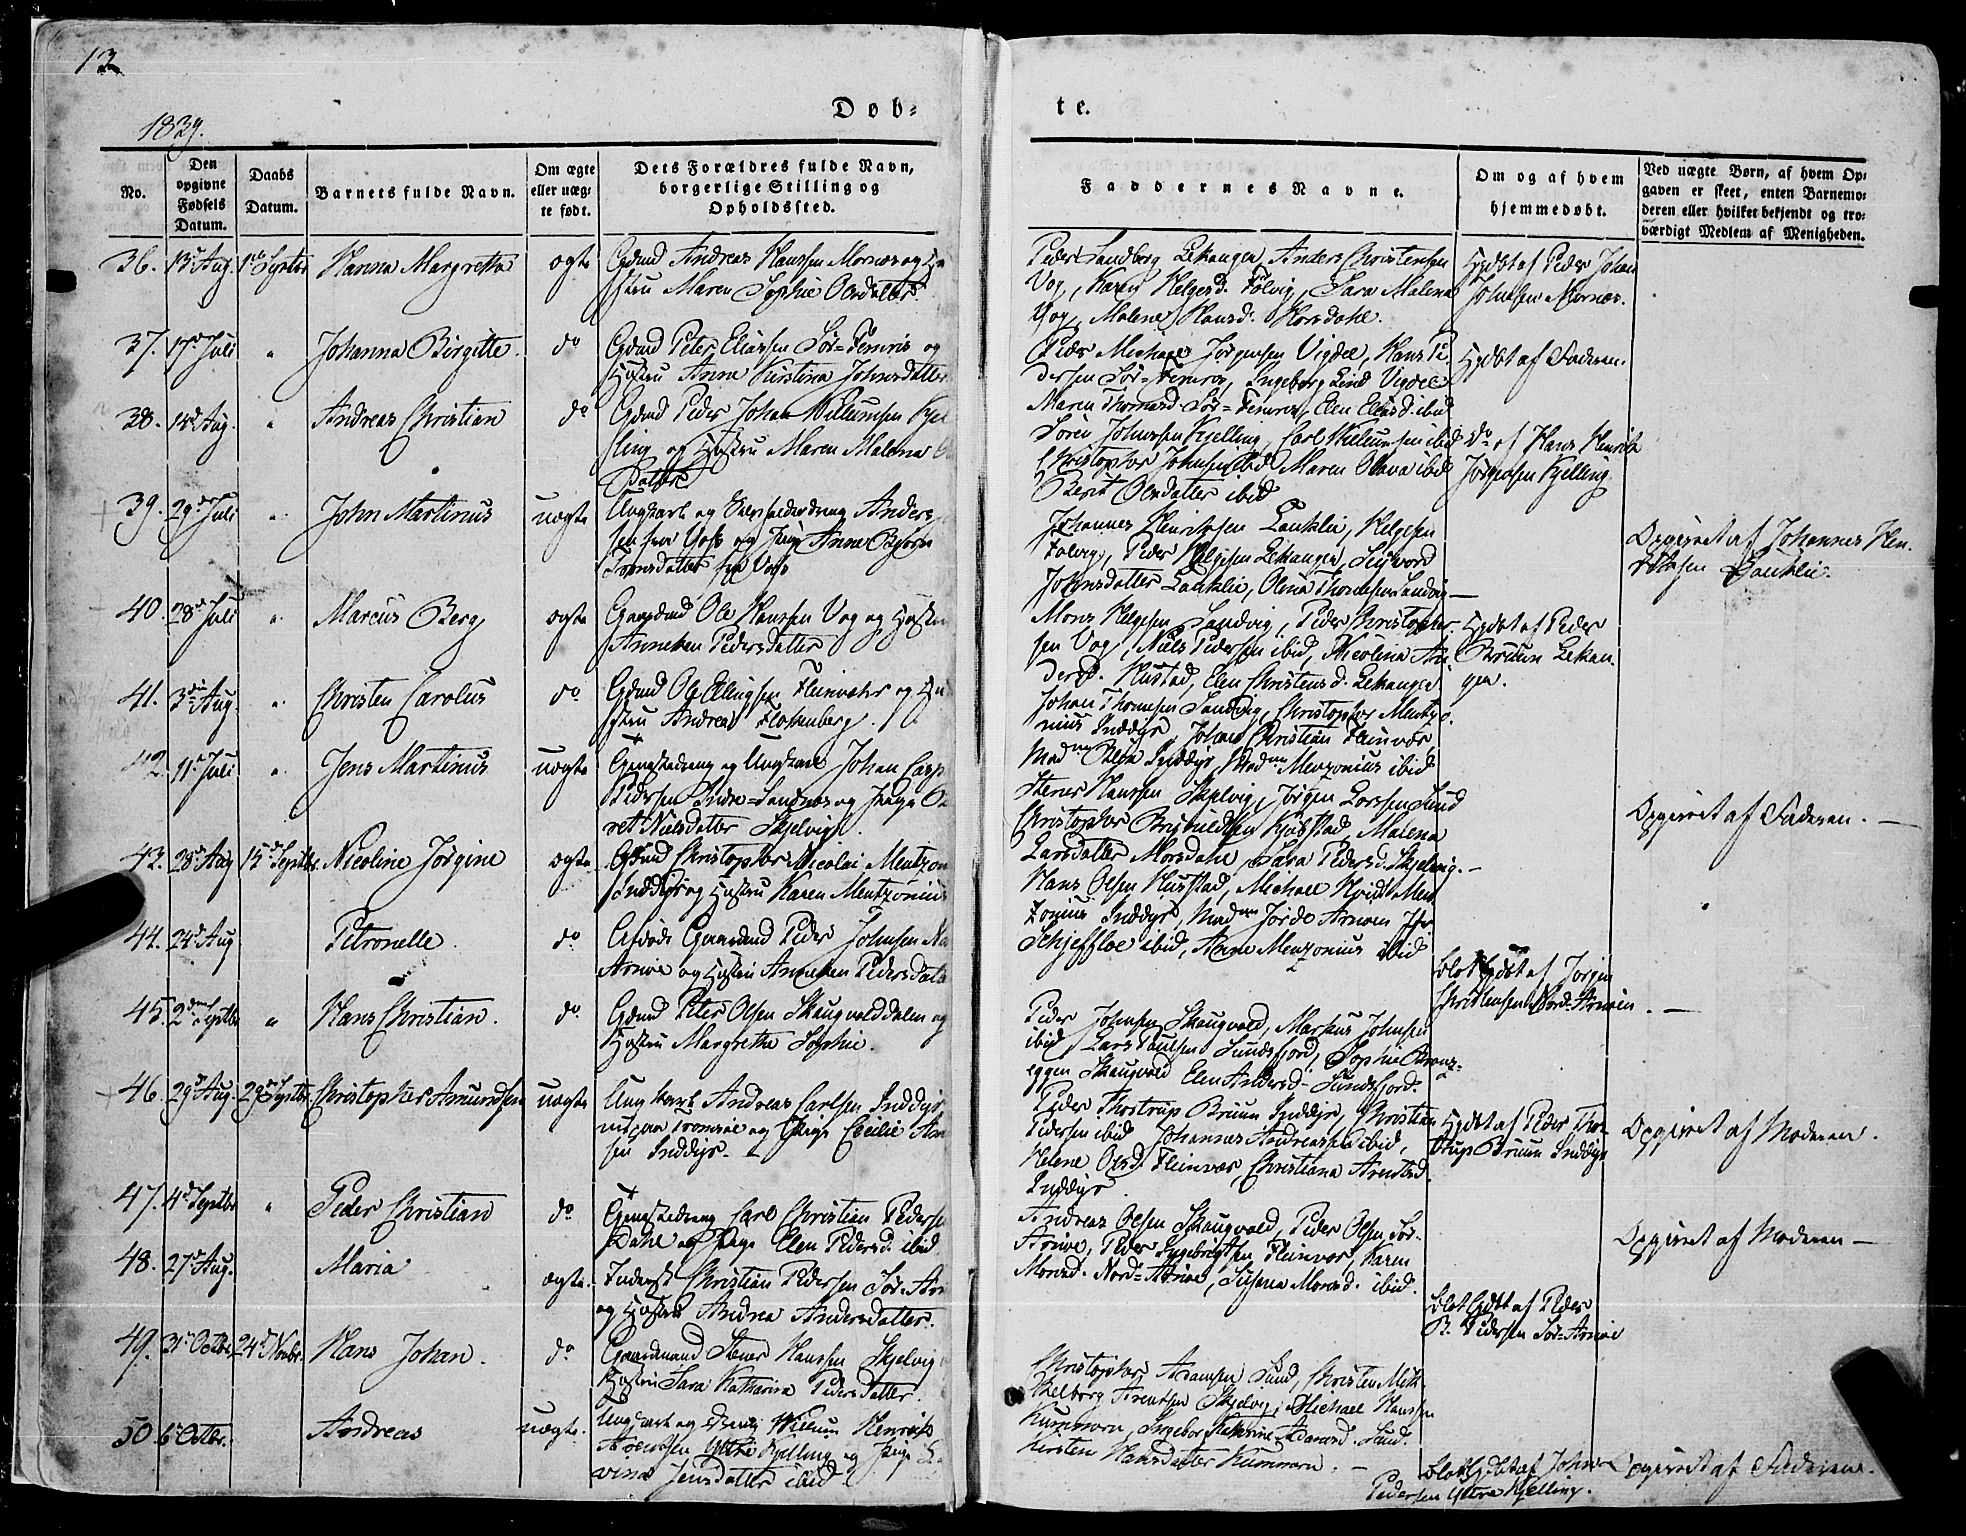 13
1839.
Døb-
te.
No.
Den
opgivne
Fødsels
Datum.
Daabs
Datum.
Barnets fulde Navn.
Om ægte
eller uæg-
te født.
Dets Forældres fulde Navn,
borgerlige Stilling og
Opholdssted.
Faddernes Navne.
Om og af hvem
hjemmedøbt.
Ved uægte Børn, af hvem Op-
gaven er skeet, enten Barnemo-
deren eller hvilket bekjendt og tro-
værdigt Medlem af Menigheden.
36. 13 Aug. Septbr Hanna Margretha ægte
Gdmd Andreas Hanssen Mornæs og
Maren Sophie Olsdatter
Peder Sandberg Lekanger, Anders Christensen
Vog, Karen Helgesd. Følvig, Sara Malena
Vog, Malene Hansd. Horsdahl.
Hjdbt af Peder Johan
Johnsen Mornæs.
37. 17 Juli " Johanna Birgitte. do
Gdmd Peter Eliassen Sør-Femris og
Hustru Anna Kirstina Johnsdatter
Peder Michael Jørgensen Vigdel, Hans Pe-
dersen Sør-Femris, Ingeborg Lind Vigdel
Maren Thomasd. Sør-Femris, Elen Eliasd. ibid
Hjdbt af Faderen.
38. 14 Aug. " Andreas Christian do
Gdmd Peder Johan Willumsen Kjel
ling og Hustru Maren Malena
Søren Johnssen Kjelling, Carl Willumsen ibid
Christopher Johnsen ibid Maren Olava ibid
Berit Olsdatter ibid
Do af Hans Henrik
Kjelling.
39. 29 Juli " John Martinus uægte
Ungkarl og Anders
sen fra Vog og Pige Anne
datter fra Vog
Johannes Henriksen Laukli, Helgesen
Følvig, Peder Helgesen Lekanger,
Johnsdatter Laukli, Olena Sandvig
Opgivet af Johannes Hen-
riksen Laukli.
40. 28 Juli " Marcus Berg ægte
Gaardmd Ole Hanssen Vog og Hustru
Anneken Pedersdatter
Mons Helgesen Sandvig, Peder Christopher-
sen Vog, Niels Pedersen ibid, Nicolina An-
dersd. Hustad, Elen Christensd. Lekanger.
Hjdbt af Peder
Bruun Lekan-
ger.
41. 3 Aug " Christen Carolus do
Gdmd Ole Ellingsen Fleinvær og
Hustru Andrea
Johan Thomesen Sandvig, Christopher Mentzo-
nius Inddyr, Johan Christian Fleinvær
Mad Inddyr, Mad Menzonius ibid
42. 11 Juli " Jens Martinus uægte
Gaardsdreng og Ungkarl Johan
Pedersen Indre-Sandnæs og Pige
Nielsdatter Skjelvig.
Stener Hanssen Skjelvig, Jørgen Larssen Sund
Christopher Kjelstad, Malena
Larsdatter Morsdahl, Sara Pedersd. Skjelvig.
Opgivet af Faderen.
43. 28 Aug 15 Septbr. Nicoline Jørgine ægte
Gdmd Christopher Nicolai Mentzon
Inddyr og Hustru Karen Mentzonius
Hans Olsen Hustad, Michael Hvidt Men-
zonius Inddyr, Mad Jorde Arnøen
Schjefloe ibid, Anne Menzonius ibid
44. 24 Aug Petronelle. do
Gaardmd Peder Johnsen
Arnøe og Hustru Anneken Pedersdatter
Blot Hjdbt af Jørgen
Christensen Nord-Arnøen.
45. 2 Septbr " Hans Christian. do
Gdmd Peter Olsen Skaugvolddalen og
Hustru Margrethe Sophie.
Peder Johnsen Skaugvold, Markus Johnsen
ibid, Lars Paulsen Sundsfjord, Sophie
eggen Skaugvold Elen Andersd. Sundsfjord.
46. 29 Aug. 29 Septbr. Christopher Amundsen uægte
Ungkarl Andreas Carlsen Inddyr
Tromsøe og Pige Cecilie
sen Inddyr.
Peder Thostrup Bruun Inddyr, Christian
Pedersen ibid Johannes Andreassen ibid,
Helene Olsd. Fleinvær, Christiana Arentsd.
Inddyr.
Hjdbt af Peder Tho-
strup Bruun Inddyr
Opgivet af Moderen.
47. 4 Septbr " Peder Christian do
Carl Christian Pedersen
Dahl og Pige Elen Pedersd. ibid
Andreas Olsen Skaugvold, Peder Olsen Sør-
Arnøe, Peder Ingebrigtsen Fleinvær, Karen
Monsd. Nord-Arnøe, Susanna Monsd. ibid.
Opgivet af Moderen
48. 27 Aug. Maria ægte.
Inderst Christian Pedersen Sør-Arn
og Hustru Andrea Andersdatter.
Blot Hjdbt af Peder
R. Pedersen Sør-Arnøe
49. 31 Octbr. 24 Novbr. Hans Johan. do
Gaardmand Stener Hanssen Skjelvig
Hustru Sara Katharina Pedersdatter.
Christopher Adamsen Sund, Christen
Arentsen Skjelvig, Michael Hanssen
Kummoen, Ingebor Katharine Adamsd. Sund.
Kirsten Hansdatter Kummoen.
50 6 Octbr. Andreas uægte.
Ungkarl og Willum Henrik
Arentsen Yttre Kjelling og Pige
vina Jensdatter ibid
Blot Hjdbt af Johan
Pedersen Yttre Kjelling.
Opgivet af Faderen.